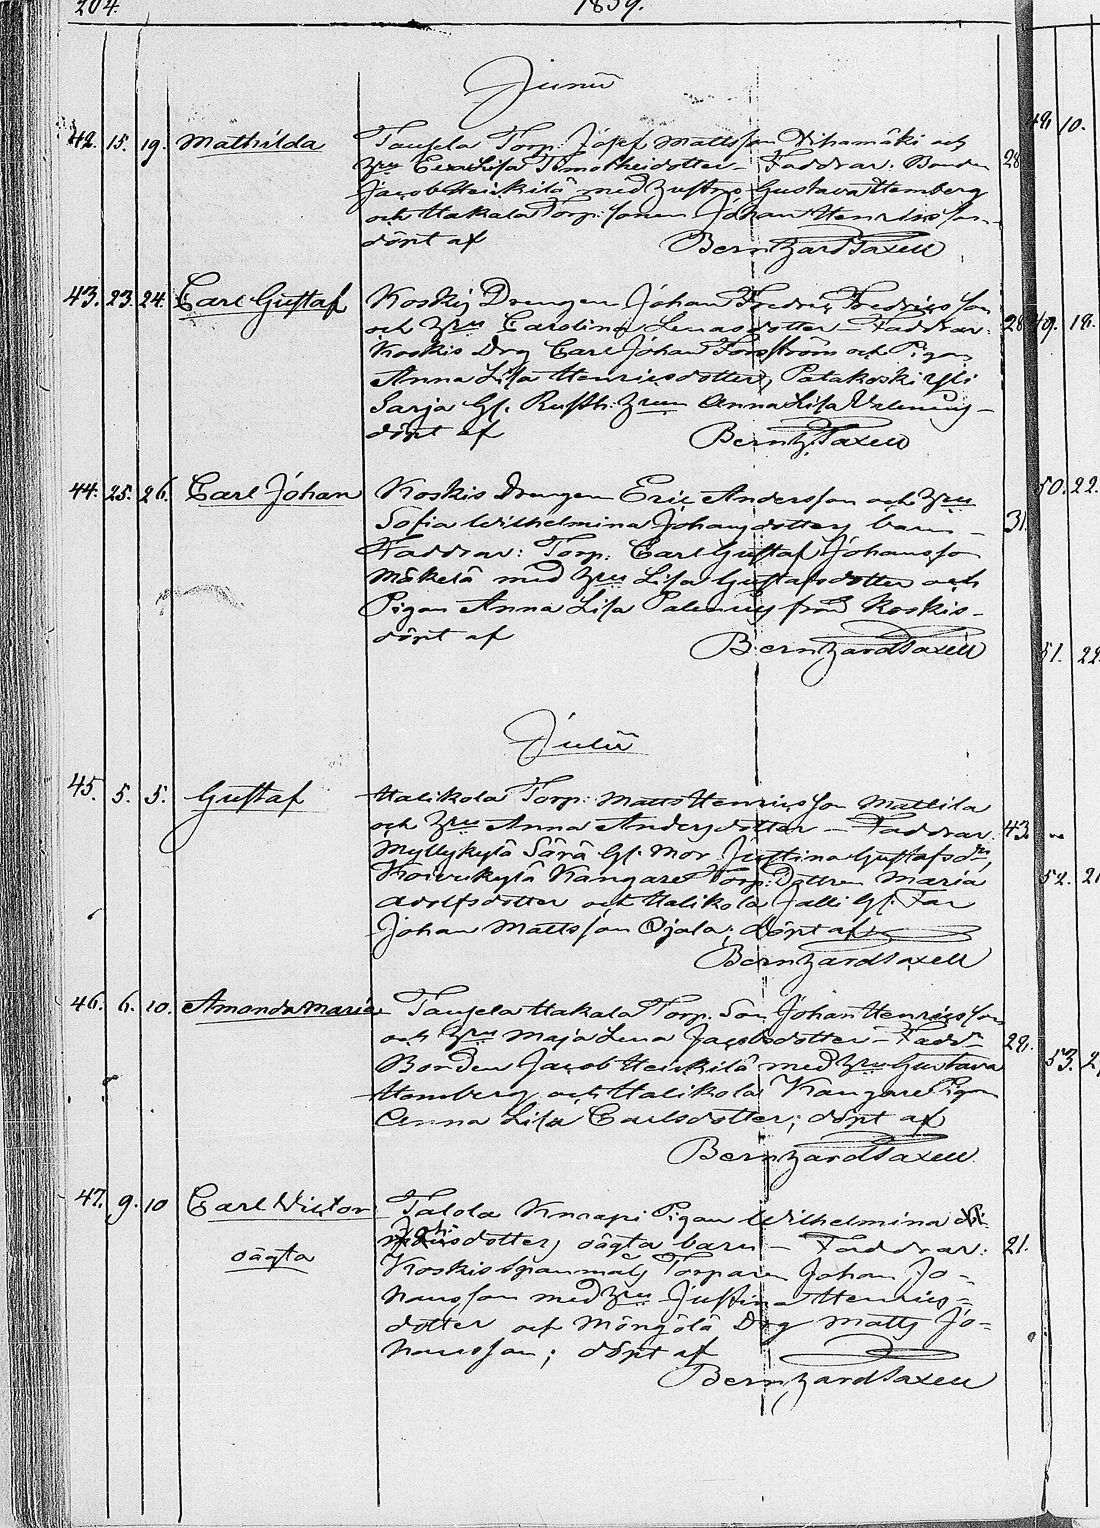 204. 1859.
Junii
42. 15. 19. Mathilda Taipela Torp. Josef Mattsson Vihamäki och
Hru Eva Lisa Timotheidotter – Faddrar: Bonden 28
Jacob Heickilä med hustru Gustava Hemberg
och Hakala Torp. sonen Johan Henricsson –
döpt af Bernhard Taxell
43. 23. 24. Carl Gustaf Koskis Drengen Johan Fredric Fredricsson
och Hru Carolina Lenasdotter – Faddrar: 28
Koskis Drg Carl Johan Forsström och Pigan
Anna Lisa Henricsdotter, Patakoski
Sarja Gl. Rusth. Hrun Anna Lisa
döpt af Bernh. Taxell
44. 25. 26. Carl Johan Koskis Drengen Eric Andersson och Hru
Sofia Wilhelmina Johansdotters barn – 31.
Faddrar: Torp. Carl Gustaf Johansson
Mäkelä med Hru Lisa Gustafsdotter och
Pigan Anna Lisa från Koskis –
döpt af Bernhard Taxell
Julii
45. 5. 5. Gustaf Halikola Torp. Matts Henricsson Mattila
och Hru Anna Andersdotter – Faddrar: 43.
Myllykylä Särä Gl. Mor Justina Gustafsdr,
Koivukylä Kangare Torp. Dottren Maria
Adolfsdotter och Halikola Jalli Gl. Far
Johan Mattsson Ojala; döpt af
Bernhard Taxell
46. 6. 10. Amanda Maria Taipela Hakala Torp. Son Johan Henricsson
och Hru Maja Lena Jacobsdotter – Fadd. 29.
Bonden Jacob Heickilä med Hru Gustava
Hemberg och Halikola Kangare Pigan
Anna Lisa Carlsdotter; döpt af
Bernhard Taxell
47. 9. 10 Carl Victor Talola Knaapi Pigan Wilhelmina
oägta sdotters oägta barn – Faddrar: 21.
Koskis Spannmåls Torparen Johan Jo-
hansson med Hru Justina Henrics-
dotter och Mängälä Drg Matts Jo-
hansson; döpt af
Bernhard Taxell
10.
49. 18.
50. 22.
51. 22.
52.
53.